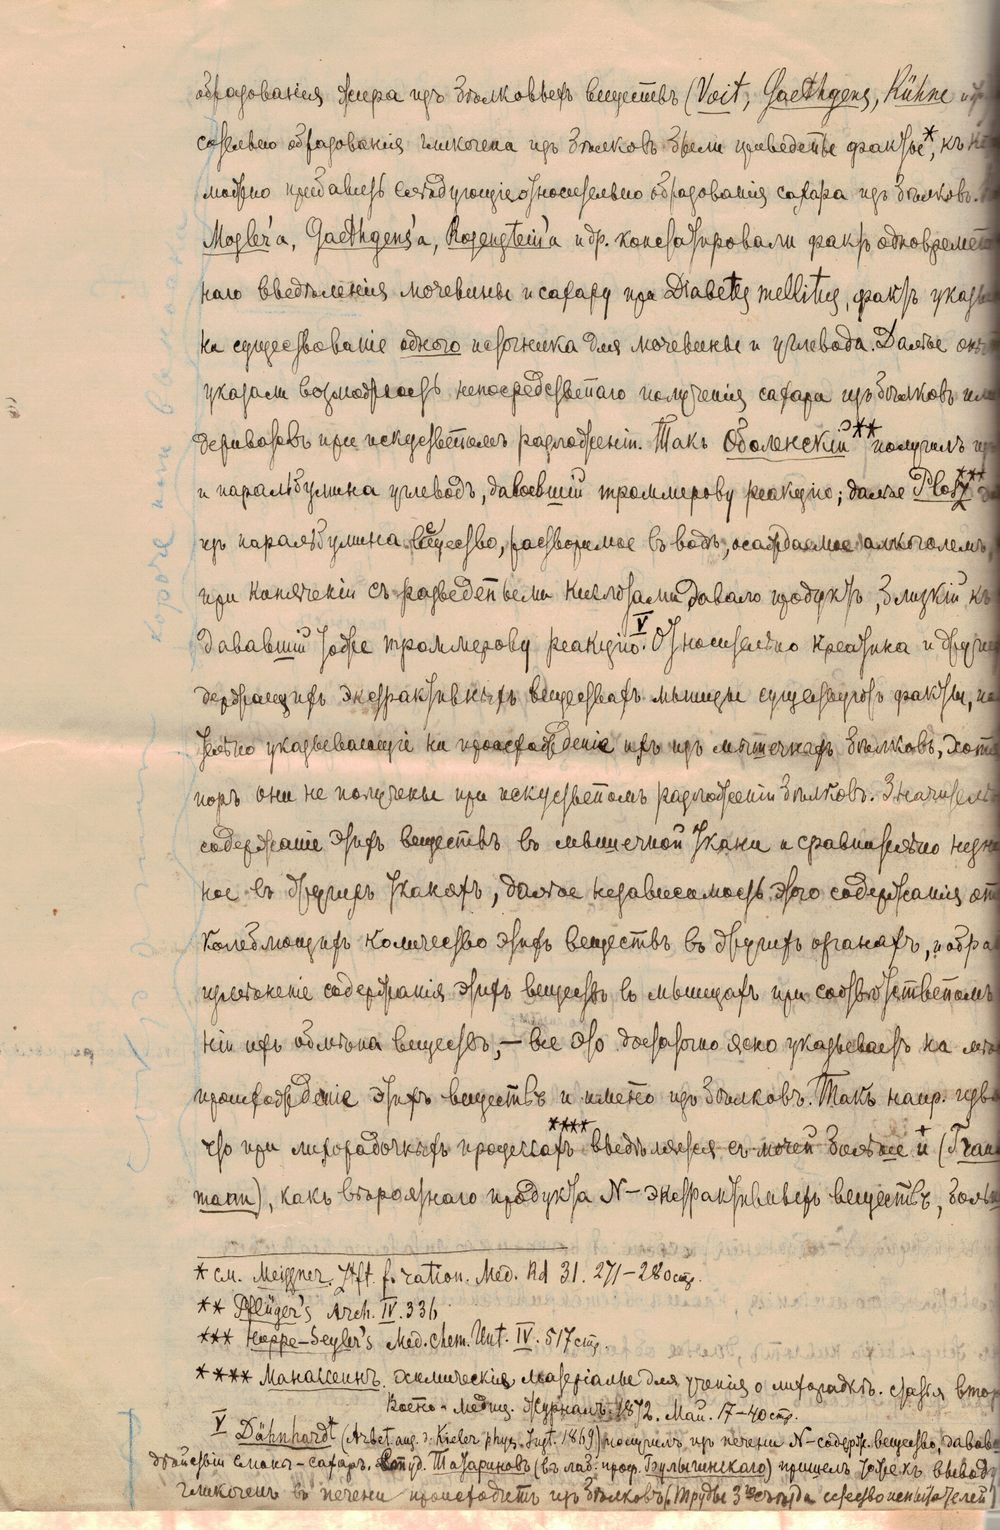 образованія жира изъ бѣлковыхъ веществъ (Voit, Gaethgens, Rühne и др
образованія гликогена изъ бѣлковъ были приведены факты*, къ
можно прибавить слѣдующіе относительно образованія сахара изъ бѣлковъ.
Mosler'а, Gaethgens'а, Rosenstein'а и др. констатировали фактъ одновремен
наго выдѣленія мочевины и сахару при Diabetes mellitus, фактъ указы
на существованіе одного источника для мочевины и углевода. Далѣе опы
указали возможность непосредственаго полученія сахара изъ бѣлковъ или
дериватовъ при искуственомъ разложеніи. Такъ Оболенскій** получилъ изъ
и паральбумина углеводъ, дававшій троммерову реакцію; далѣе Plosz***
изъ паральбумина вещество, растворимое въ водѣ, осаждаемое алкоголемъ,
при кипяченіи съ разведеными кислотами давало продуктъ, близкій къ
дававшій тоже троммерову реакцію. V Относительно креатина и други
держащихъ экстрактивныхъ веществахъ мышцы существуютъ факты,
указывающіе на происхожденіе ихъ изъ мышечныхъ бѣлковъ, хотя
поръ они не получены при искуственомъ разложеніи бѣлковъ. Значитель
содержаніе этихъ веществъ въ мышечной ткани и сравнительно незна
ное въ другихъ тканяхъ, далѣе независимость этого содержанія от
колеблющихъ количество этихъ веществъ въ другихъ органахъ, и обра
содержанія этихъ веществъ въ мышцахъ при соотвѣтственомъ
ніи ихъ обмѣна веществъ, — все это достаточно ясно указываетъ на
происхожденіе этихъ веществъ и именно изъ бѣлковъ. Такъ напр. изв
что при лихорадочныхъ процессахъ**** выдѣляется съ мочей болѣе ū+ (Гран
mann), какъ вѣроятнаго продукта N–экстрактивныхъ веществъ, боль
* см. Meissner. Ztft. f. ration. Med. Bd 31. 271–280 стр.
** Pflüger's Arch. IV. 336.
*** Hoppe-Seyler's Med. chem. Unt. IV. 517 стр.
**** Манассеинъ. Химическіе матеріалы для ученія о лихорадкѣ. статья втор
Военно-Медиц. Журналъ. 1872. Май. 17–40 стр.
V Dähnhardt (Arbet. aus. d. Kieler phys. Inst. 1869) получилъ изъ печени N-содерж. вещество, дававш
дѣйствіи слюны – сахаръ. Студ. Татариновъ (въ лаб. проф. Булыгинскаго) пришелъ также къ выводу
гликогенъ въ печени происходитъ изъ бѣлковъ. (Труды 3го съѣзда естествоиспытателей)